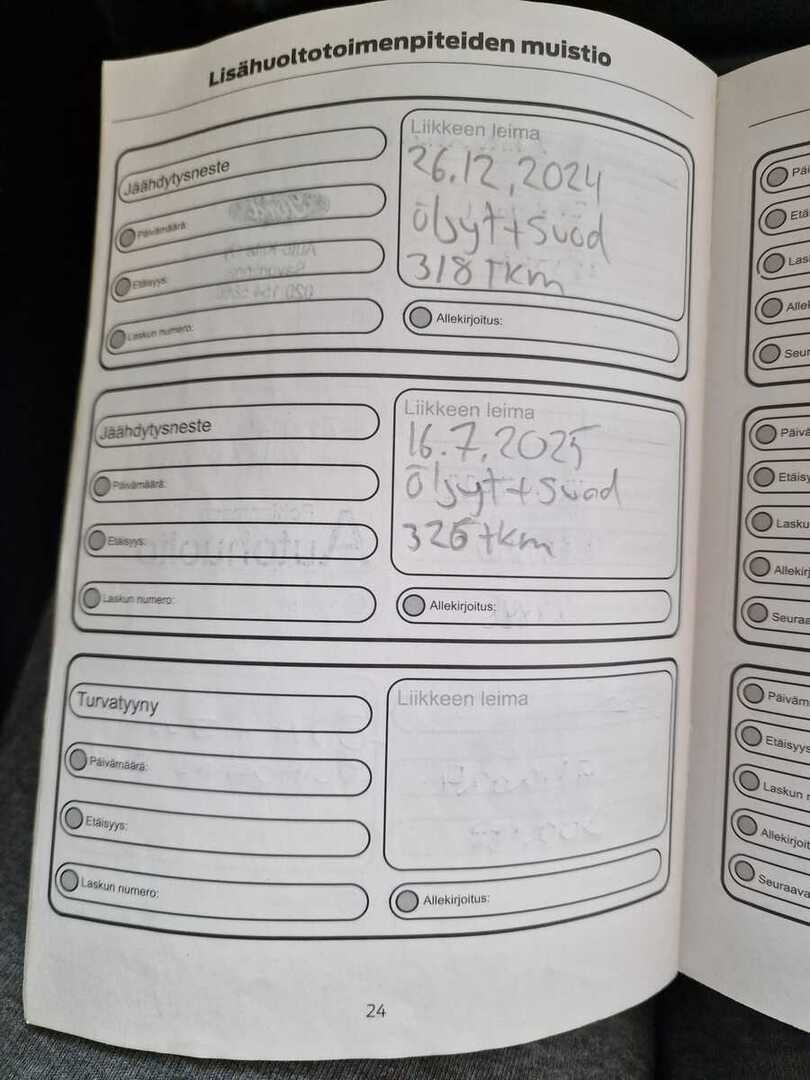 Lisähuoltotoimenpiteiden muistio
Jäähdytysneste
Päivämäärä:
Etäisyys:
Laskun numero:
Liikkeen leima
26.12.2024
öljyt+suod
318 Tkm
Allekirjoitus:
Jäähdytysneste
Päivämäärä:
Etäisyys:
Laskun numero:
Liikkeen leima
16.7.2025
öljyt+suod
326 tkm
Allekirjoitus:
Turvatyyny
Päivämäärä:
Etäisyys:
Laskun numero:
Liikkeen leima
Allekirjoitus:
24
Päi
Etä
Las
Allek
Seur
Päivä
Etäisy
Lasku
Allekirj
Seuraa
Päiväm
Etäisyys
Laskun n
Allekirjoit
Seuraava